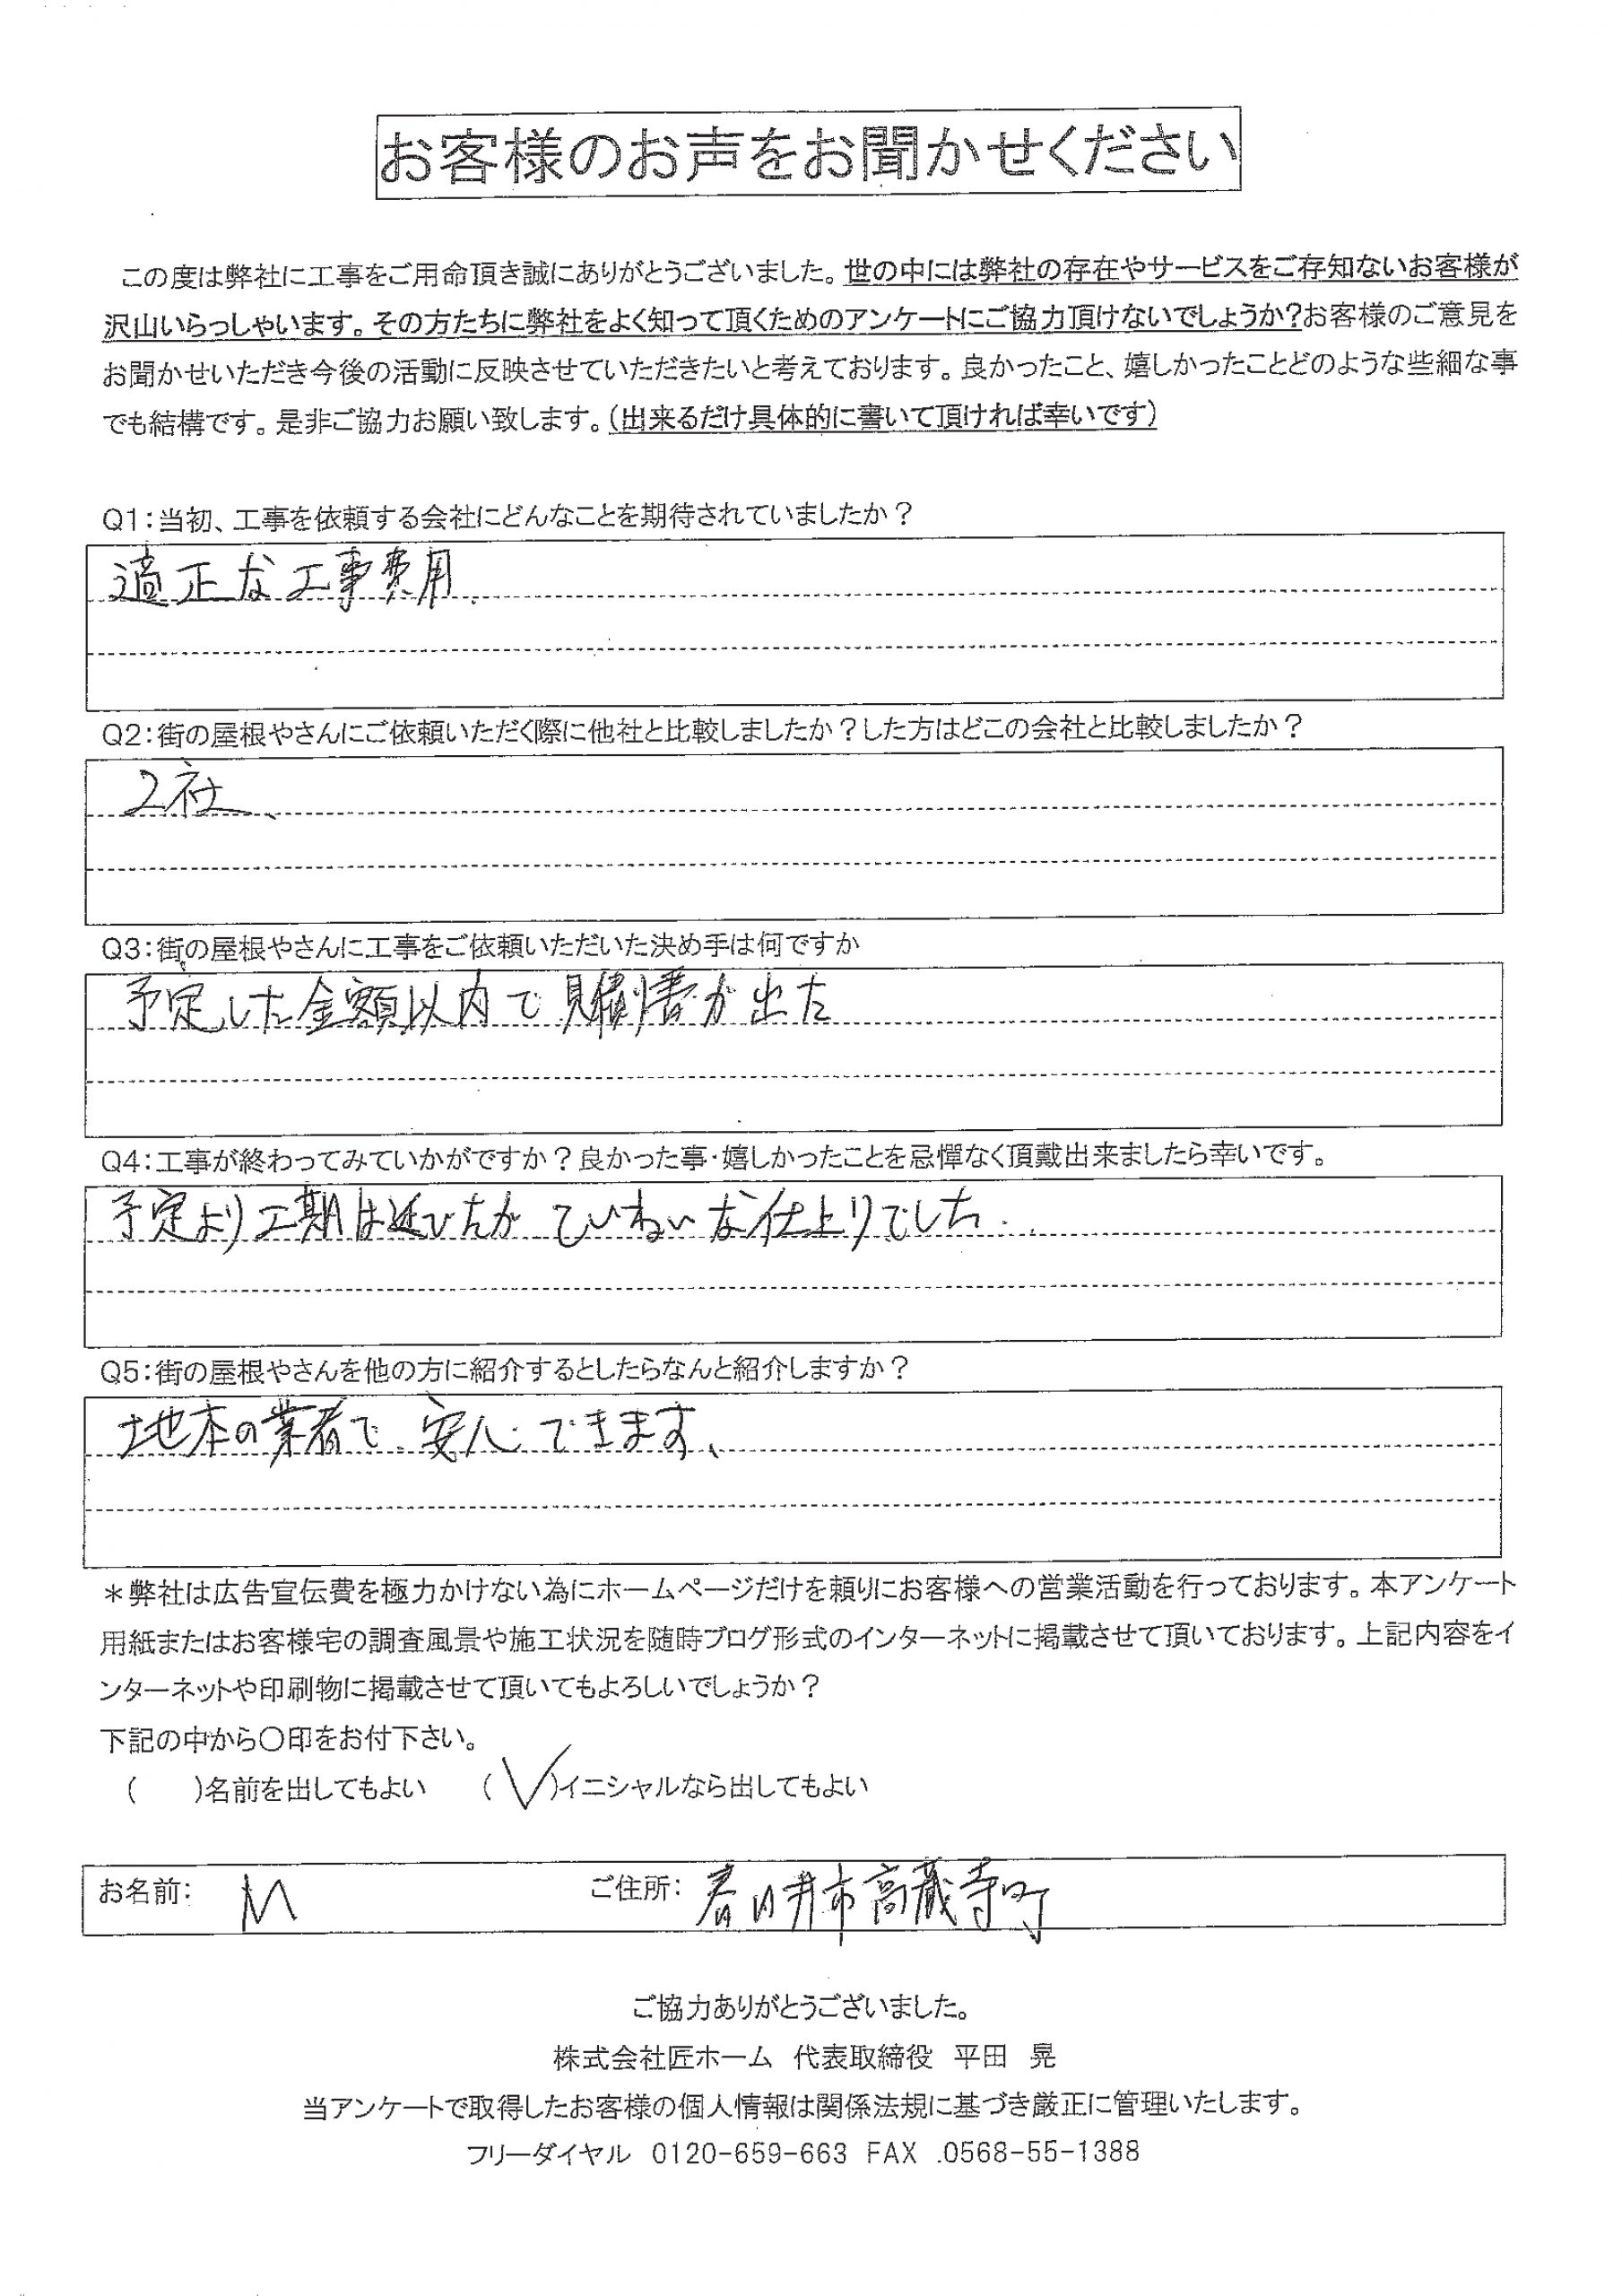 お客様のお声をお聞かせください
この度は弊社に工事をご用命頂き誠にありがとうございました。世の中には弊社の存在やサービスをご存知ないお客様が
沢山いらっしゃいます。その方たちに弊社をよく知って頂くためのアンケートにご協力頂けないでしょうか?お客様のご意見を
お聞かせいただき今後の活動に反映させていただきたいと考えております。良かったこと、嬉しかったことどのような些細な事
でも結構です。是非ご協力お願い致します。(出来るだけ具体的に書いて頂ければ幸いです)
Q1:当初、工事を依頼する会社にどんなことを期待されていましたか?
適正な工事費用.
Q2:街の屋根やさんにご依頼いただく際に他社と比較しましたか?した方はどこの会社と比較しましたか?
2社、
Q3:街の屋根やさんに工事をご依頼いただいた決め手は何ですか
予定した金額以内で見積書が出た
Q4:工事が終わってみていかがですか?良かった事・嬉しかったことを忌憚なく頂戴出来ましたら幸いです。
予定より工期は延びたが ていねいな仕上りでした.
Q5:街の屋根やさんを他の方に紹介するとしたらなんと紹介しますか?
地本の業者で 安心できます、
*弊社は広告宣伝費を極力かけない為にホームページだけを頼りにお客様への営業活動を行っております。本アンケート
用紙またはお客様宅の調査風景や施工状況を随時ブログ形式のインターネットに掲載させて頂いております。上記内容をイ
ンターネットや印刷物に掲載させて頂いてもよろしいでしょうか?
下記の中から〇印をお付下さい。
( )名前を出してもよい (✓)イニシャルなら出してもよい
お名前: M ご住所: 春日井市高蔵寺町
ご協力ありがとうございました。
株式会社匠ホーム 代表取締役 平田 晃
当アンケートで取得したお客様の個人情報は関係法規に基づき厳正に管理いたします。
フリーダイヤル 0120-659-663 FAX .0568-55-1388